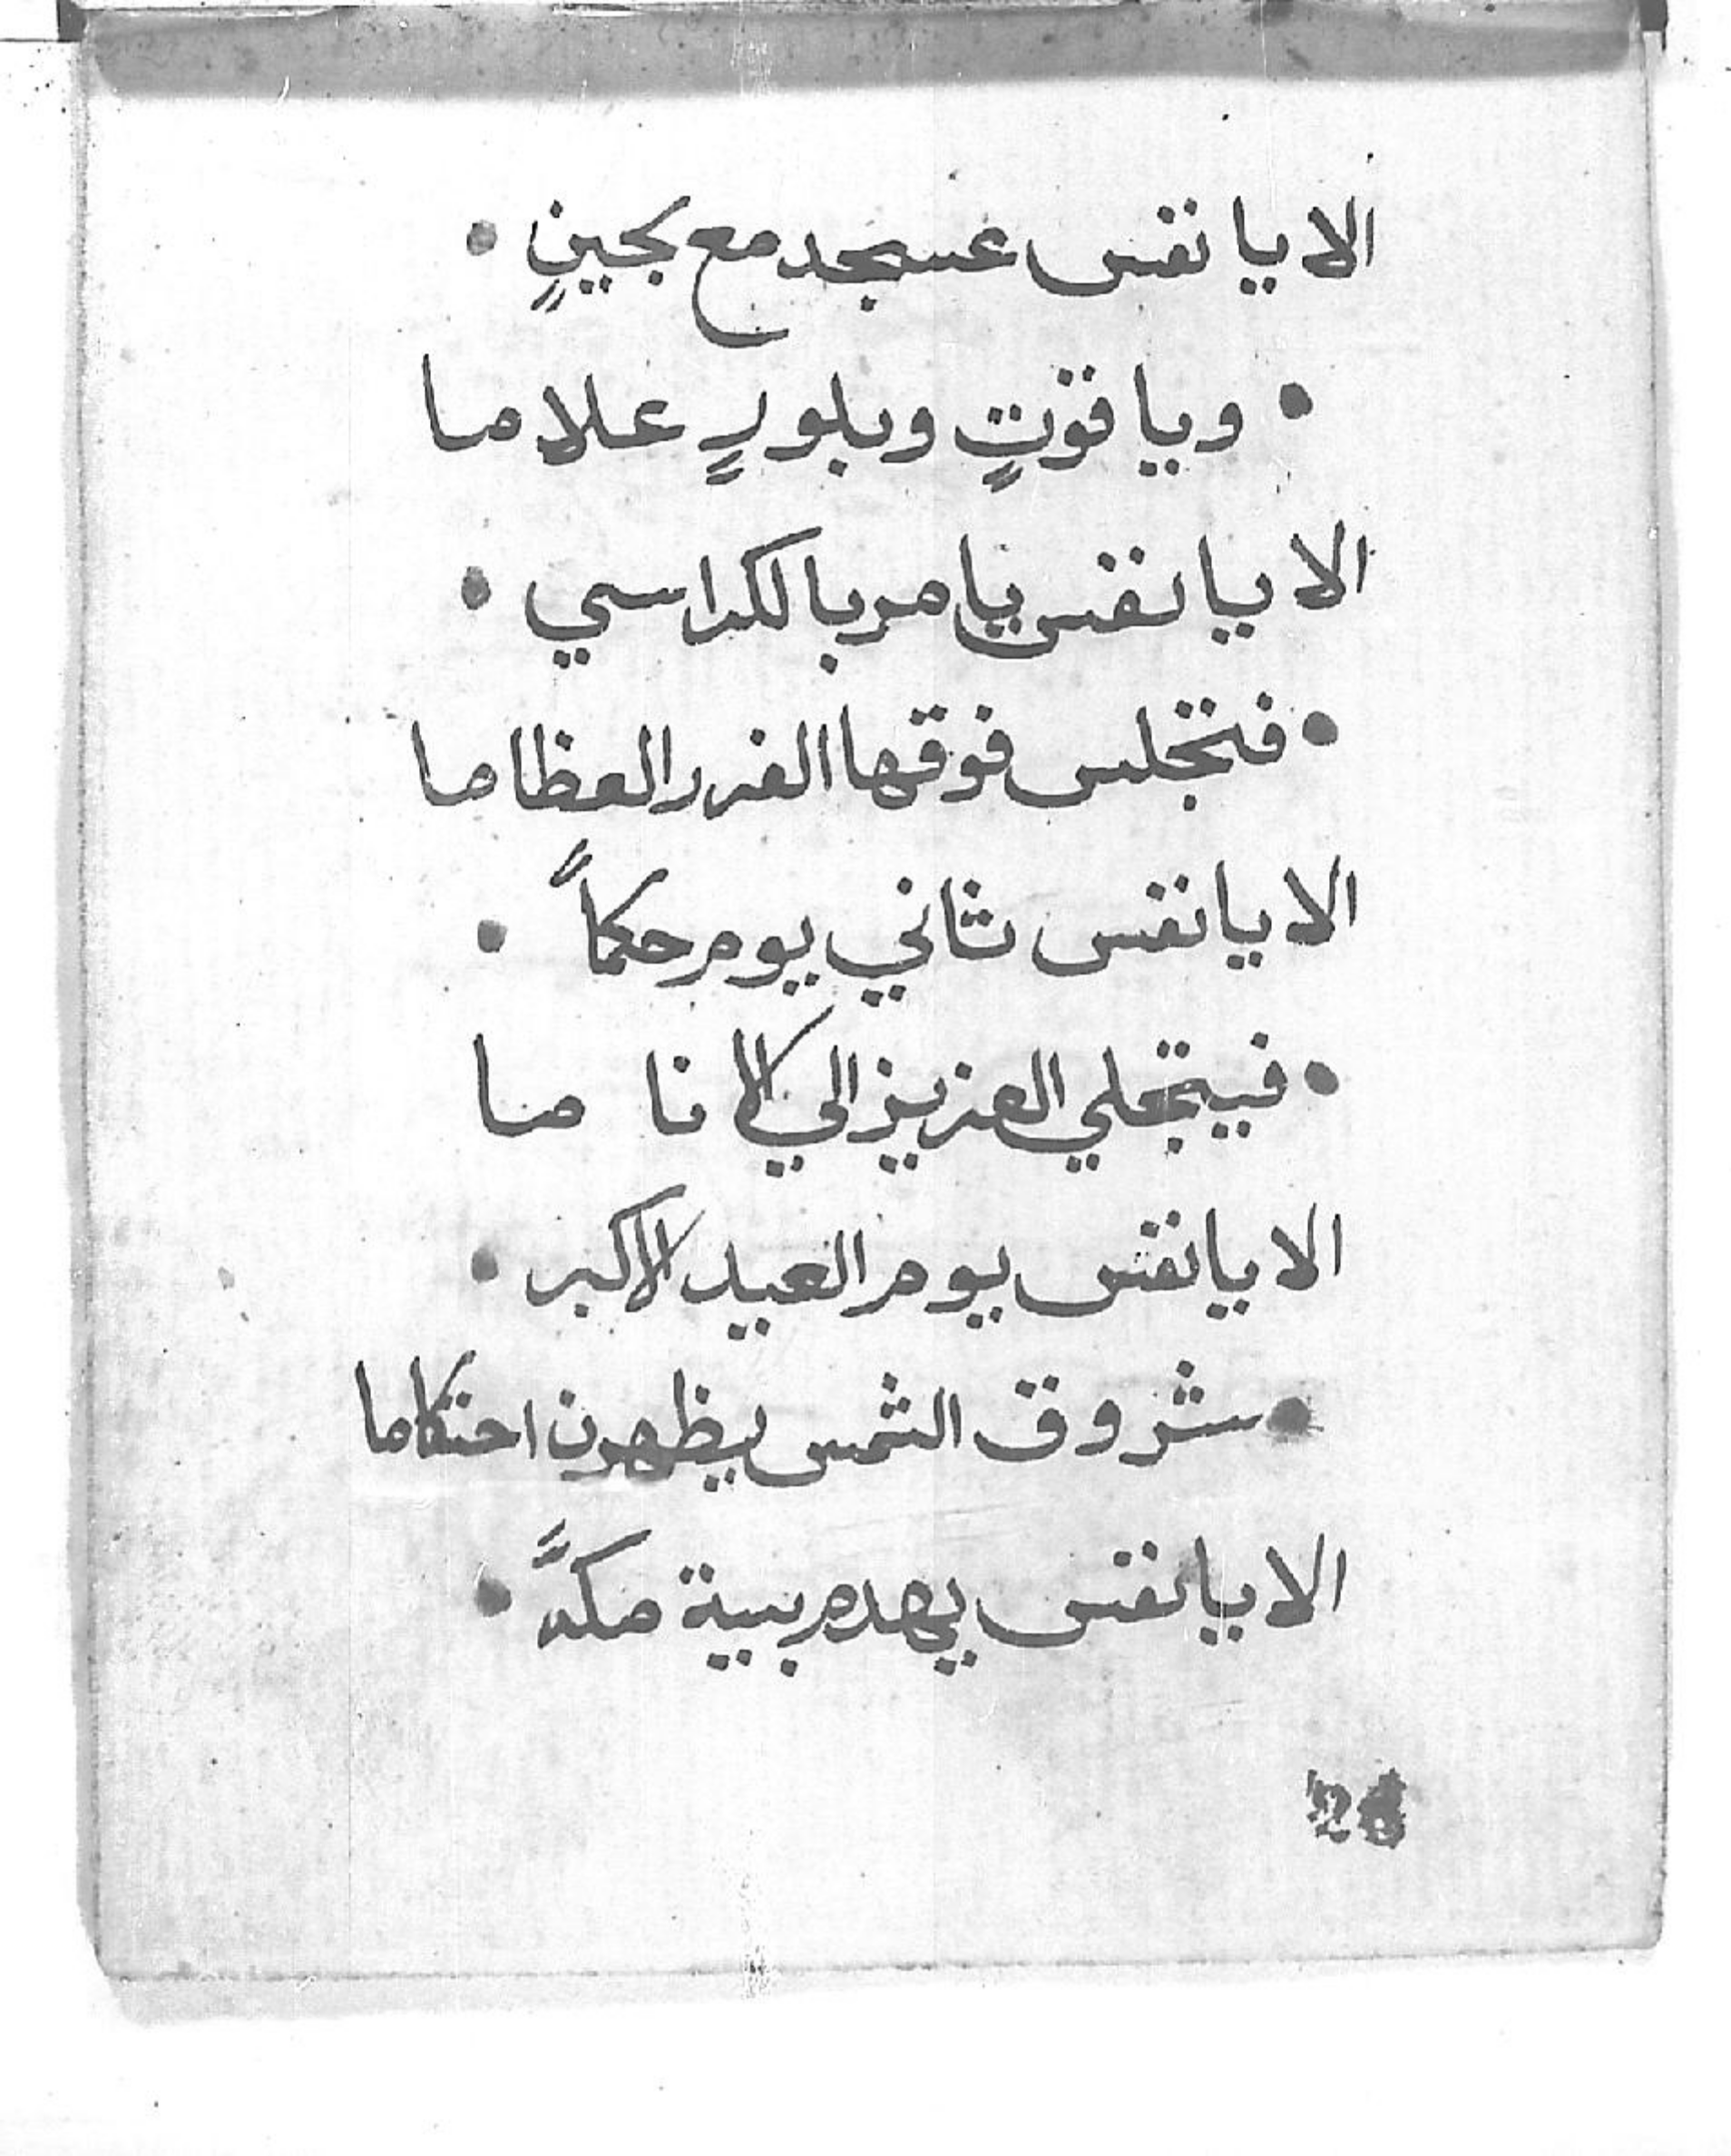 الا يا نفس عسجد مع لجينٍ •
• ويا قوتٍ وبلورٍ علاما
الا يا نفس يامر بالكراسي •
• فتجلس فوقها الغرر العظاما
الا يا نفس ثاني يوم حكماً •
• فيتجلي العزيز الي الانا ما
الا يا نفس يوم العيد الاكبر •
• شروق الشمس يظهرن احتكاما
الا يا نفس يهدم بيية مكةً •
26